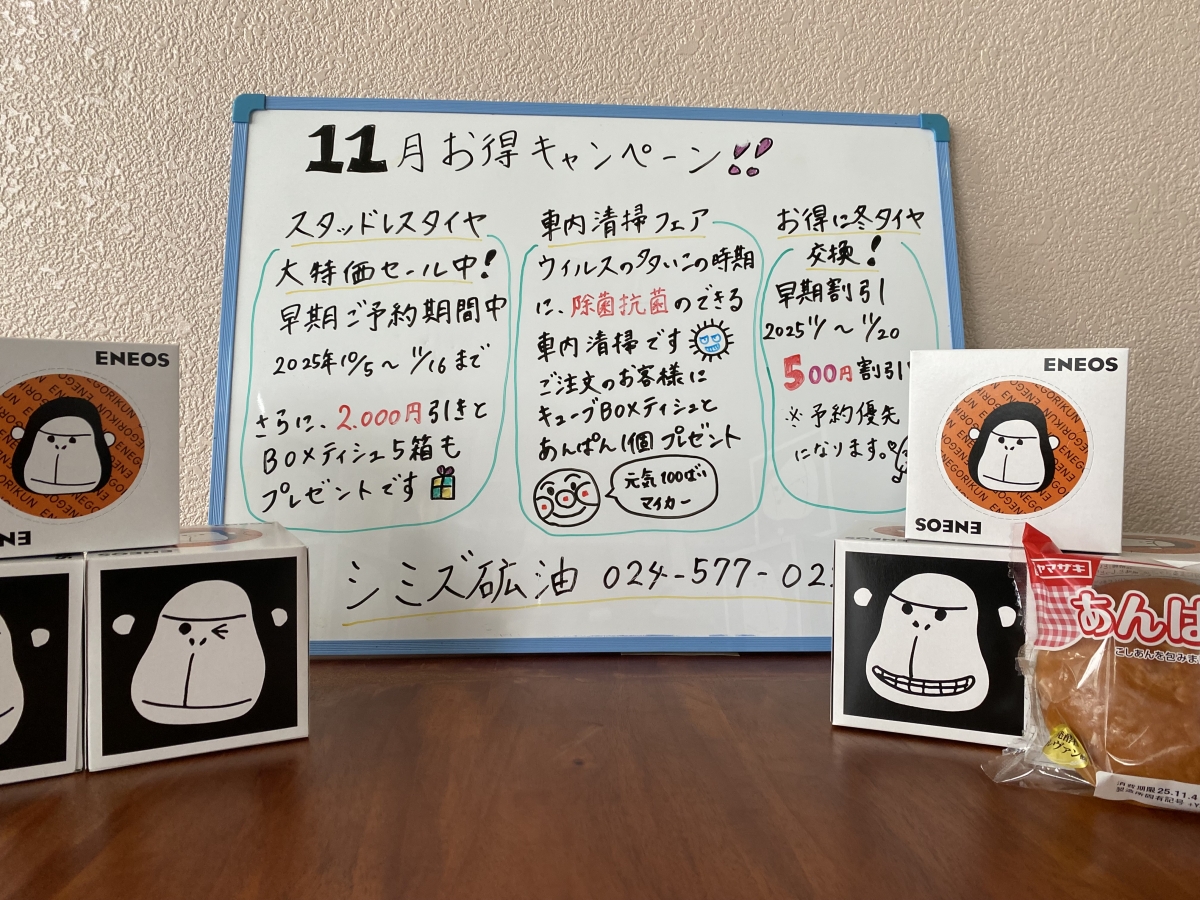 11月お得キャンペーン!!
スタッドレスタイヤ
大特価セール中!
早期ご予約期間中
2025年10/5～11/16まで
さらに、2.000円引きと
BOXティシュ5箱も
プレゼントです
車内清掃フェア
ウイルスの多いこの時期
に、除菌抗菌のできる
車内清掃です
ご注文のお客様に
キューブBOXティシュと
あんぱん1個プレゼント
元気100ばい
マイカー
お得に冬タイヤ
交換!
早期割引
2025 11/1～11/20
500円割引!
※予約優先
になります。
シミズ砿油 024-577-02
ENEOS
ENEGORIKUN
ENEOS
ENEOS
ENEGORIKUN
ENEOS
ヤマザキ
あんぱ
こしあんを包みま
消費期限 25.11.4
製造所固有記号 +Y